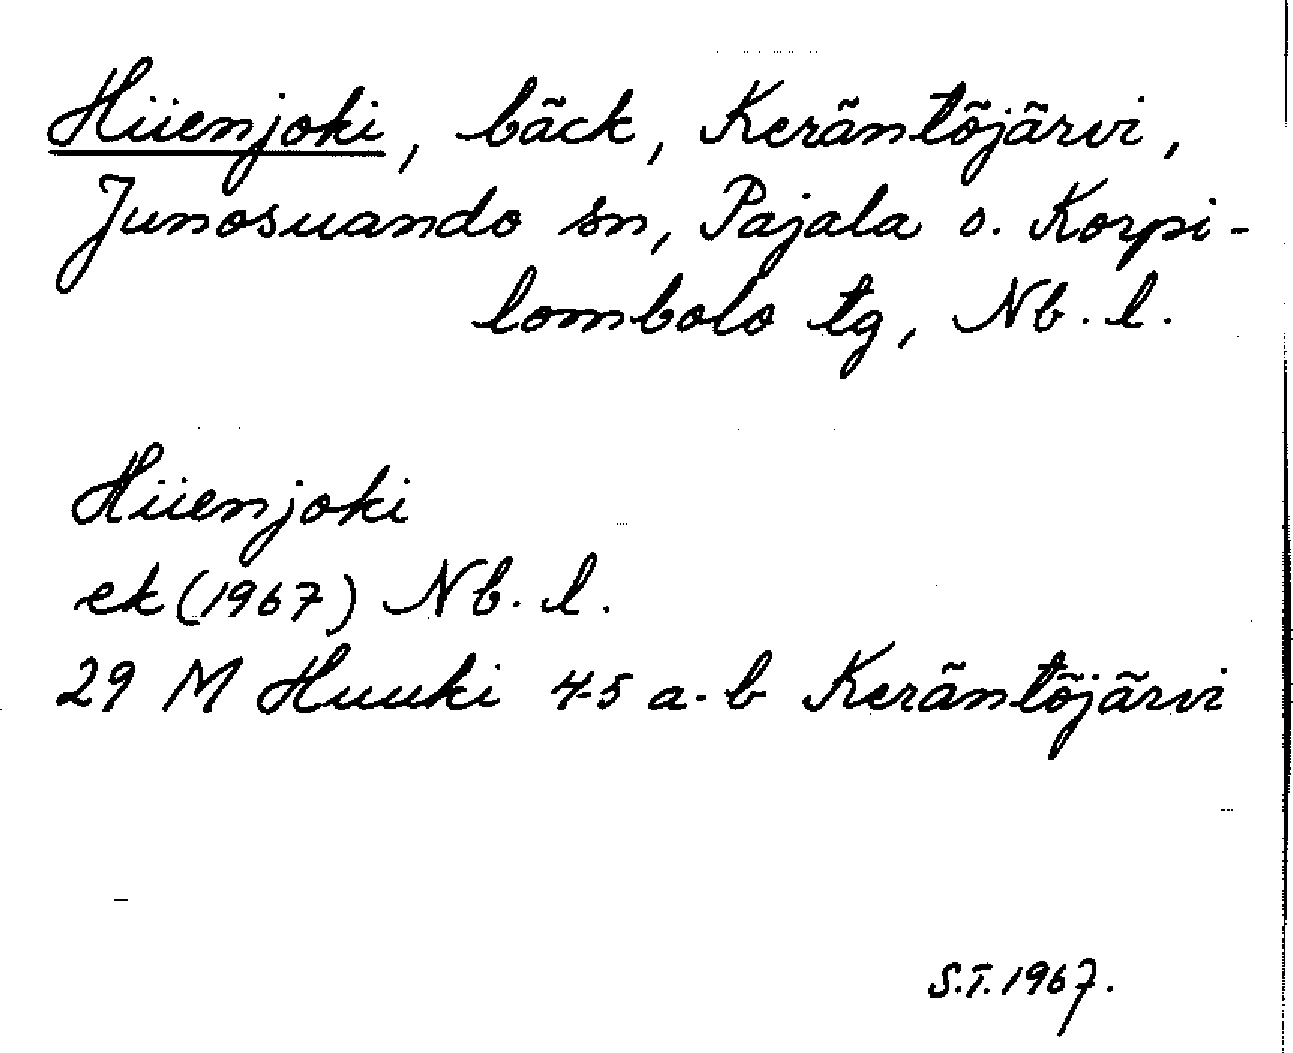 Hiienjoki, bäck, Keräntöjärvi,
Junosuando sn, Pajala o. Korpi-
lombolo tg, Nb. l.
Hiienjoki
ek (1967) Nb. l.
29 M Huuki 4-5 a-b Keräntöjärvi
S.T. 1967.